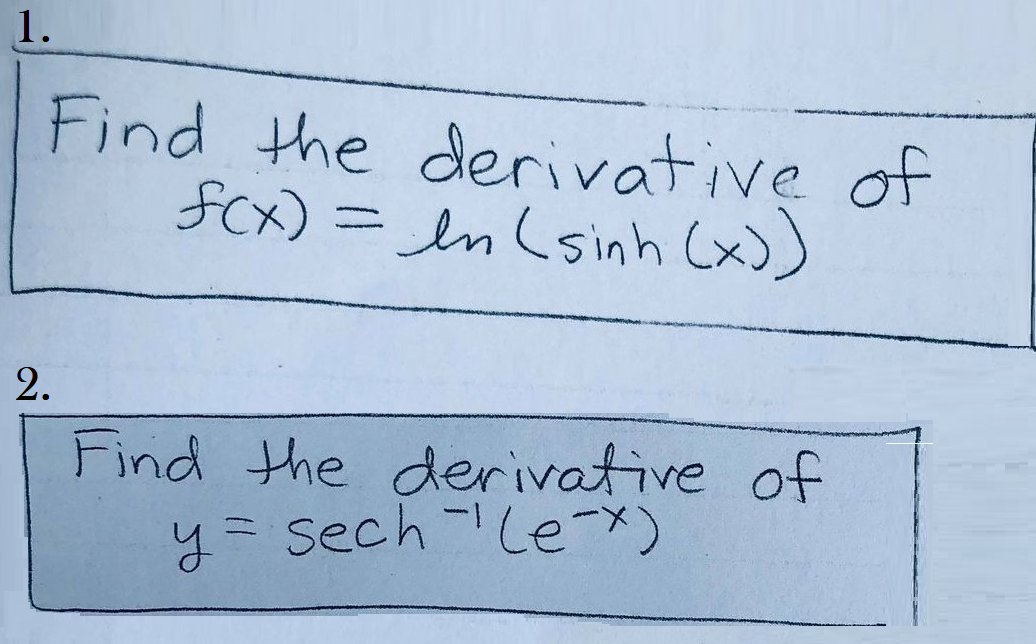 1.
Find the derivative of
f(x) = ln(sinh(x))
2.
Find the derivative of
y = sech⁻¹(e⁻ˣ)